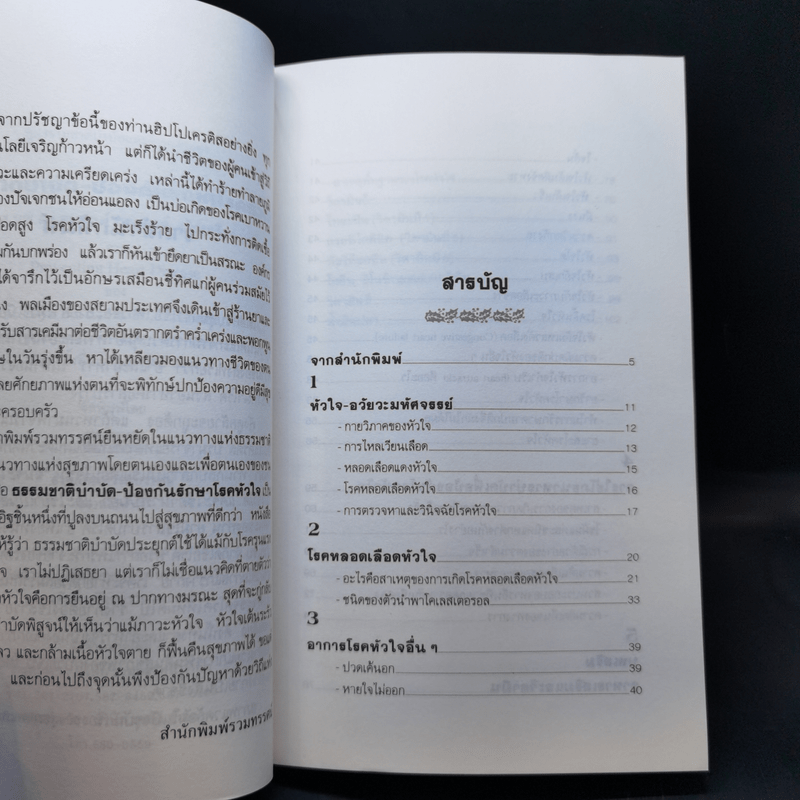 จากปรัชญาข้อนี้ของท่านฮิปโปเครติสอย่างยิ่ง
นโลยีเจริญก้าวหน้า แต่ก็ได้นำชีวิตของผู้คนเข้าสู่
วะและความเครียดเคร่ง เหล่านี้ได้ทำร้ายทำลาย
องปัจเจกชนให้อ่อนแอลง เป็นบ่อเกิดของโรคเบาหวาน
ือดสูง โรคหัวใจ มะเร็งร้าย ไปกระทั่งการติดเชื้อ
มกันบกพร่อง แล้วเราก็หันเข้ายึดยาเป็นสรณะ องค์กร
ได้จารึกไว้เป็นอักษรเสมือนชี้ทิศแก่ผู้คนร่วมสมัยไว้
ง พลเมืองของสยามประเทศจึงเดินเข้าสู่ร้านยาและ
รับสารเคมีมาต่อชีวิตอันตรากตรำคร่ำเคร่งและพอกพูน
ษในวันรุ่งขึ้น หาได้เหลียวมองแนวทางชีวิตของตน
ลยศักยภาพแห่งตนที่จะพิทักษ์ปกป้องความอยู่ดีมีสุข
ะครอบครัว
กพิมพ์รวมทรรศน์ยืนหยัดในแนวทางแห่งธรรมชาติ
นวทางแห่งสุขภาพโดยตนเองและเพื่อตนเองของชน
อ ธรรมชาติบำบัด-ป้องกันรักษาโรคหัวใจ เป็น
อิฐชิ้นหนึ่งที่ปูลงบนถนนไปสู่สุขภาพที่ดีกว่า หนังสือ
ห้รู้ว่า ธรรมชาติบำบัดประยุกต์ใช้ได้แม้กับโรครุนแรง
จ เราไม่ปฏิเสธยา แต่เราก็ไม่เชื่อแนวคิดที่ตายตัวว่า
หัวใจคือการยืนอยู่ ณ ปากทางมรณะ สุดที่จะกู่กลับ
บำบัดพิสูจน์ให้เห็นว่าแม้ภาวะหัวใจ หัวใจเต้นระรัว
ลว และกล้ามเนื้อหัวใจตาย ก็ฟื้นคืนสุขภาพได้
และก่อนไปถึงจุดนั้นพึงป้องกันปัญหาด้วยวิถีแห่ง
สำนักพิมพ์รวมทรรศน์
สารบัญ
จากสำนักพิมพ์ 5
1
หัวใจ-อวัยวะมหัศจรรย์ 11
- กายวิภาคของหัวใจ 12
- การไหลเวียนเลือด 13
- หลอดเลือดแดงหัวใจ 15
- โรคหลอดเลือดหัวใจ 16
- การตรวจหาและวินิจฉัยโรคหัวใจ 17
2
โรคหลอดเลือดหัวใจ 20
- อะไรคือสาเหตุของการเกิดโรคหลอดเลือดหัวใจ 21
- ชนิดของตัวนำพาโคเลสเตอรอล 33
3
อาการโรคหัวใจอื่น ๆ 39
- ปวดเค้นอก 39
- หายใจไม่ออก 40